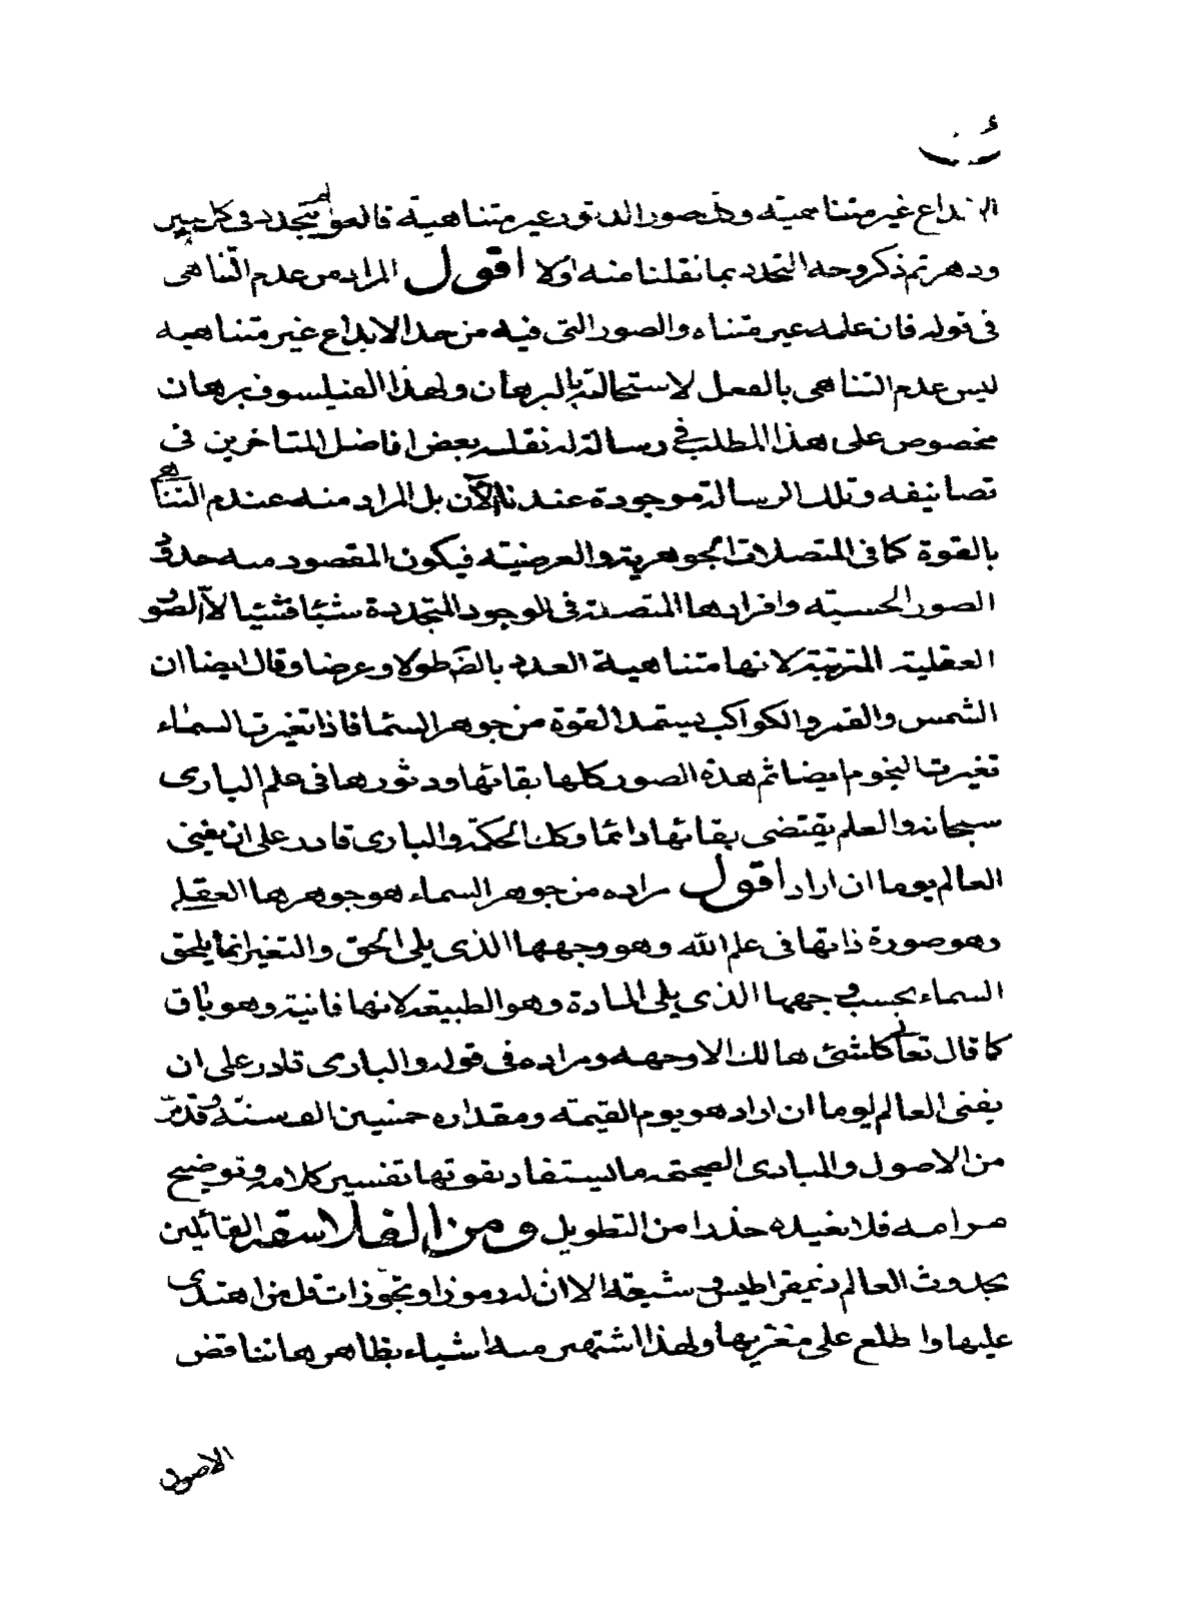 الابداع غير متناهية وكك صور الدثور غير متناهية فالعوالم يتجدد فى كل حين
ودهر ثم ذكر وجه التجدد بما نقلنا منه اولا اقول المراد من عدم التناهى
فى قوله فان علمه غير متناه والصور التى فيه من حد الابداع غير متناهيه
ليس عدم التناهى بالفعل لاستحالته بالبرهان ولهذا الفيلسوف برهان
مخصوص على هذا المطلب فى رسالة له نقله بعض افاضل المتاخرين فى
تصانيفه وتلك الرسالة موجودة عندنا الآن بل المراد منه عدم التناهى
بالقوة كما فى المتصلات الجوهرية والعرضيته فيكون المقصود منه حدوث
الصور الحسيته وافرادها المتصلة فى الوجود المتجددة شيئا فشيئا لا الصور
العقلية المترتبة لانها متناهية العدد بالضرورة طولا وعرضا وقال ايضا ان
الشمس والقمر والكواكب يستمد القوة من جوهر السما فاذا تغيرت السماء
تغيرت النجوم ايضا ثم هذه الصور كلها بقائها ودثورها فى علم البارى
سبحانه والعلم يقتضى بقائها دائما وكك الحكمة والبارى قادر على ان يفنى
العالم يوما ان اراد اقول مراده من جوهر السماء هو جوهرها العقلى
وهو صورة ذاتها فى علم الله وهو وجهها الذى يلى الحق والتغير انما يلحق
السماء بحسب وجهها الذى يلى المادة وهو الطبيعة لانها فانية وهو باق
كما قال تعالى كلشئ هالك الا وجهه ومراده فى قوله والبارى قادر على ان
يفنى العالم يوما ان اراد هو يوم القيمته ومقداره خمسين الف سنة وقد مر
من الاصول والمبادى الصحيحة ما يستفاد بقوتها تفسير كلامه وتوضيح
مرامه فلا نعيده حذرا من التطويل ومن الفلاسفة القائلين
بحدوث العالم ذيمقراطيس وشيعته الا ان له رموزا وتجوزات قل من اهتدى
عليها واطلع على مغزيها ولهذا اشتهر منه اشياء بظاهرها تناقض
الاصول